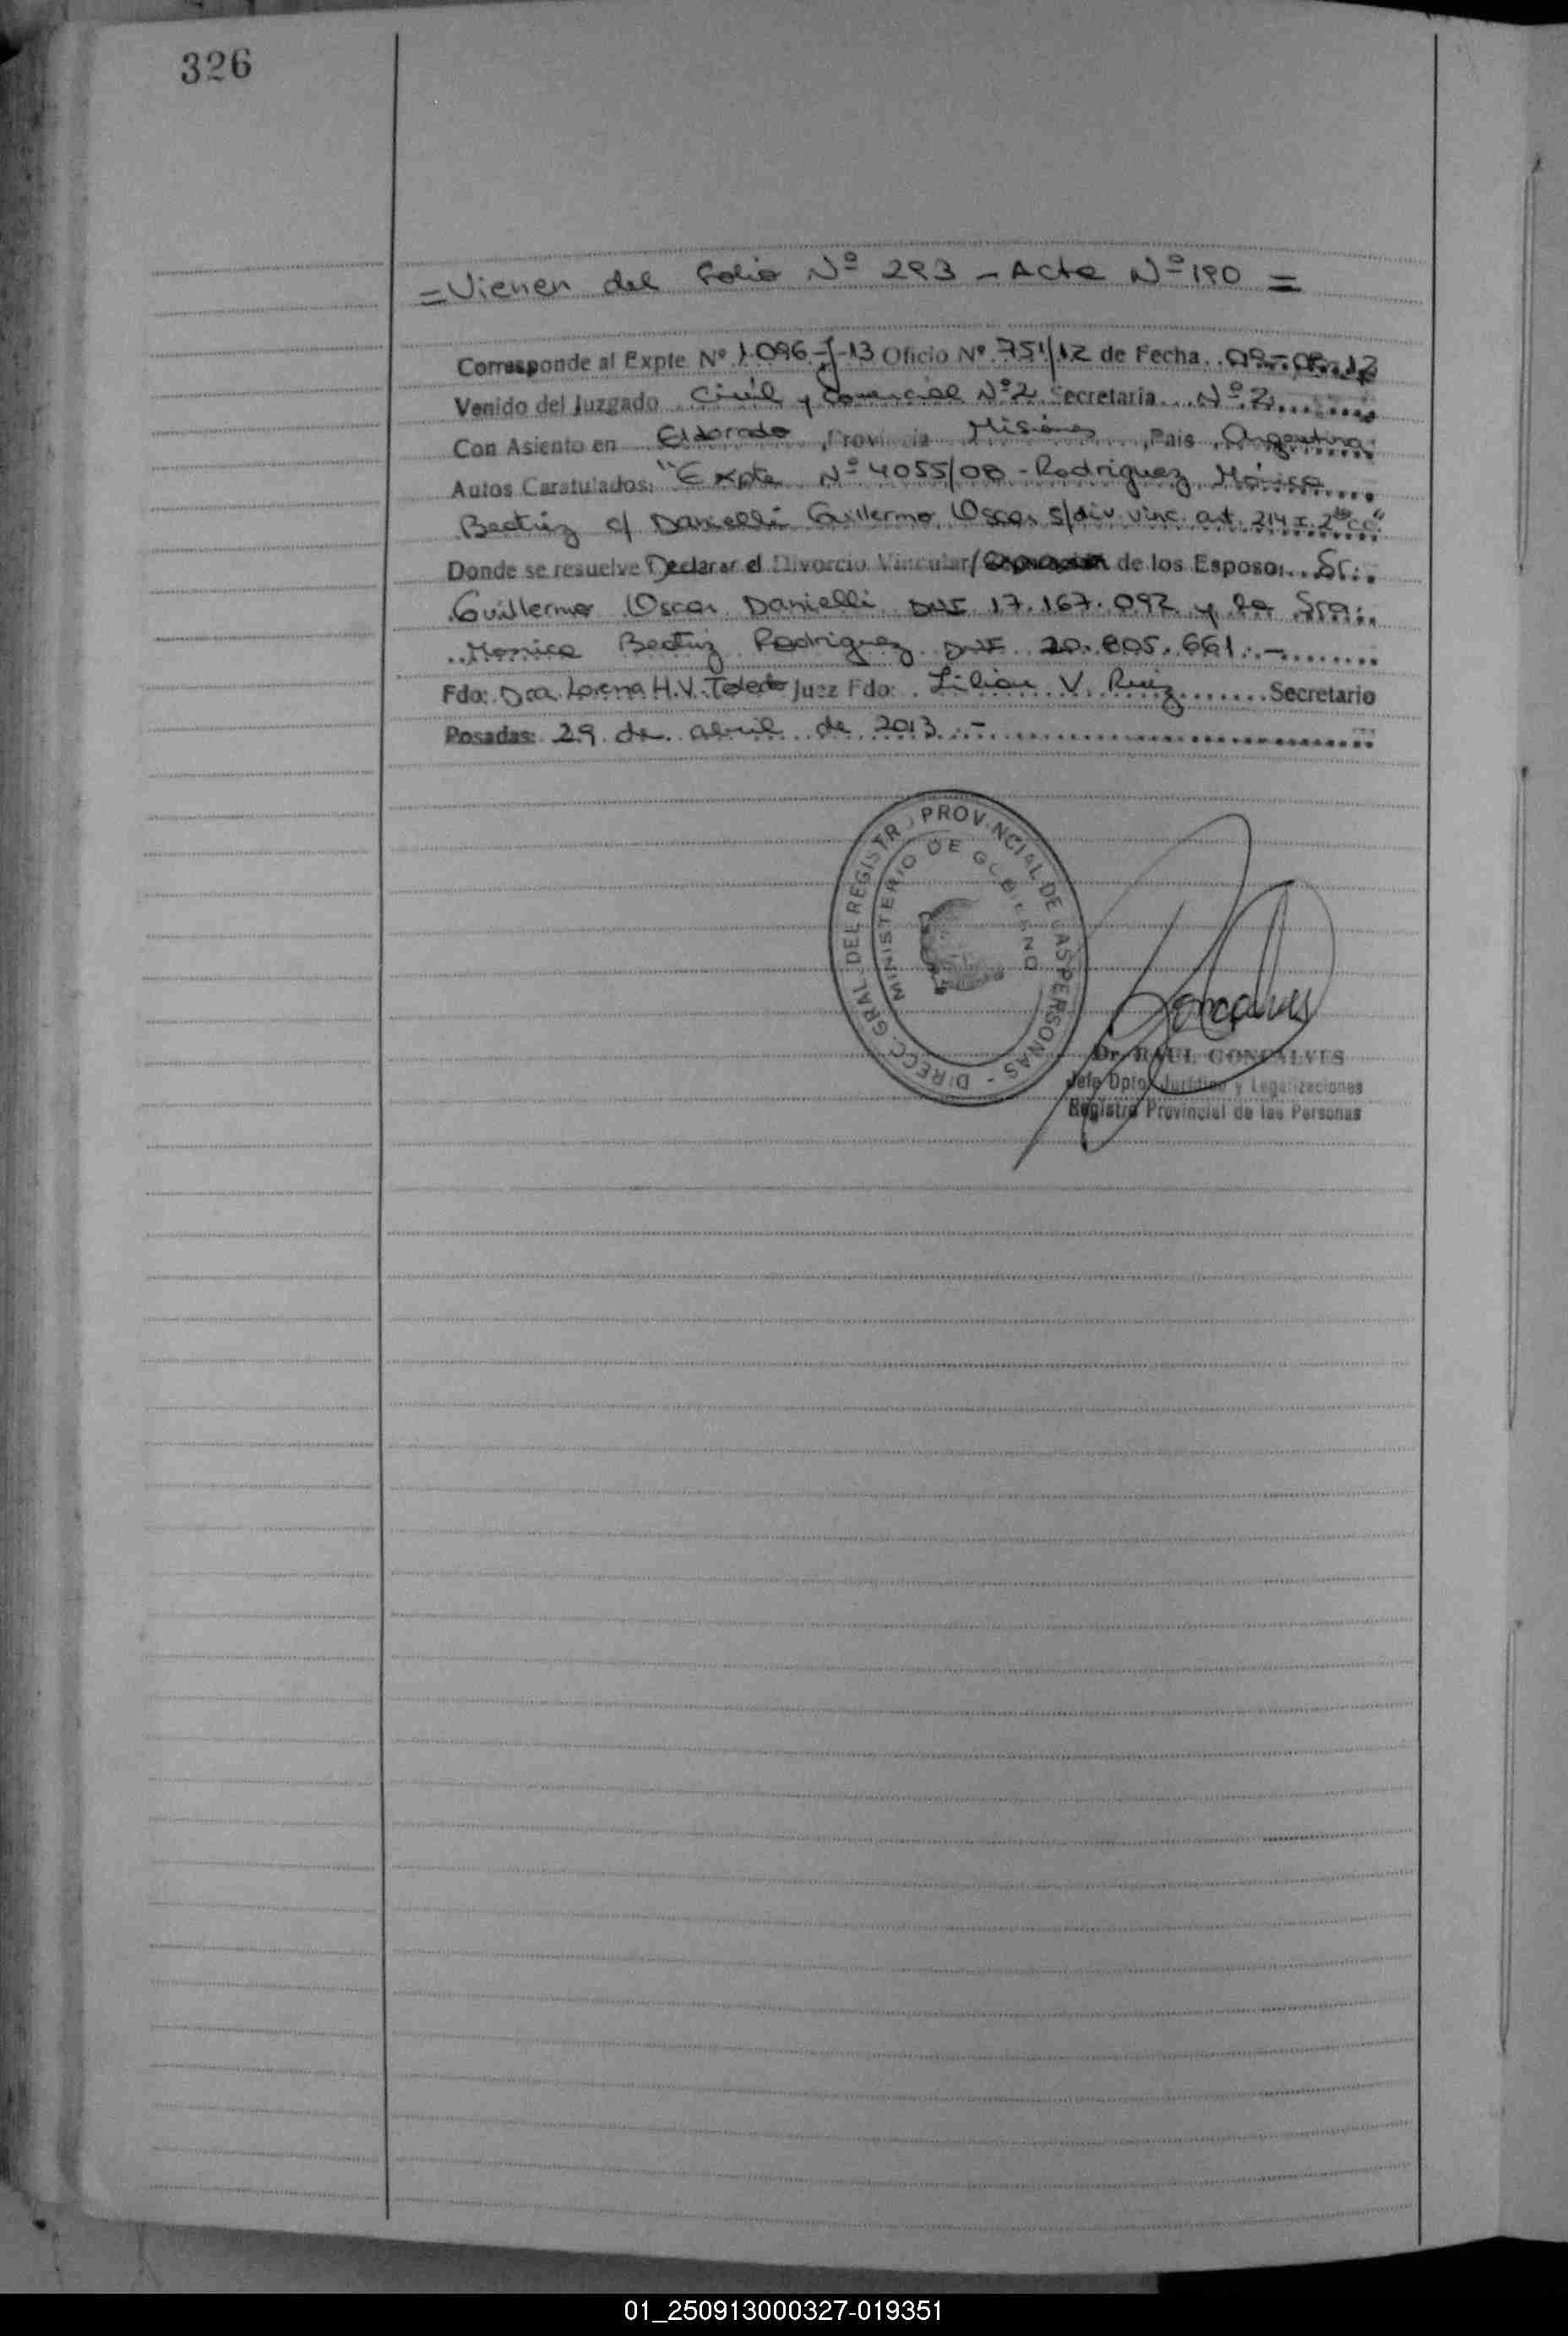 326
= Vienen del Folio Nº 293 - Acta Nº 190 =
Corresponde al Expte Nº 1096-J-13 Oficio Nº 751/12 de Fecha
Venido del Juzgado Civil y Comercial Nº 2 Secretaria Nº 2
Con Asiento en Eldorado, Provincia Misiones, Pais Argentina
Autos Caratulados: "Expte Nº 4055/08 - Rodriguez Mónica
Beatriz c/ Danielli Guillermo Oscar s/div. vinc. art. 214 I. 2do CC"
Donde se resuelve Declarar el Divorcio Vincular/ de los Esposo: Sr.
Guillermo Oscar Danielli DNI 17.167.092 y la Sra.
Monica Beatriz Rodriguez DNI 20.805.661.-
Fdo: Dra. Lorena H.V. Toledo Juez Fdo: Lilian V. Ruiz Secretario
Posadas: 29 de abril de 2013.-
DIRECC. GRAL. DEL REGISTRO PROVINCIAL DE LAS PERSONAS -
MINISTERIO DE GOBIERNO
Goncalves
Dr. RAUL GONCALVES
Jefe Dpto. Jurídico y Legalizaciones
Registro Provincial de las Personas
01_250913000327-019351